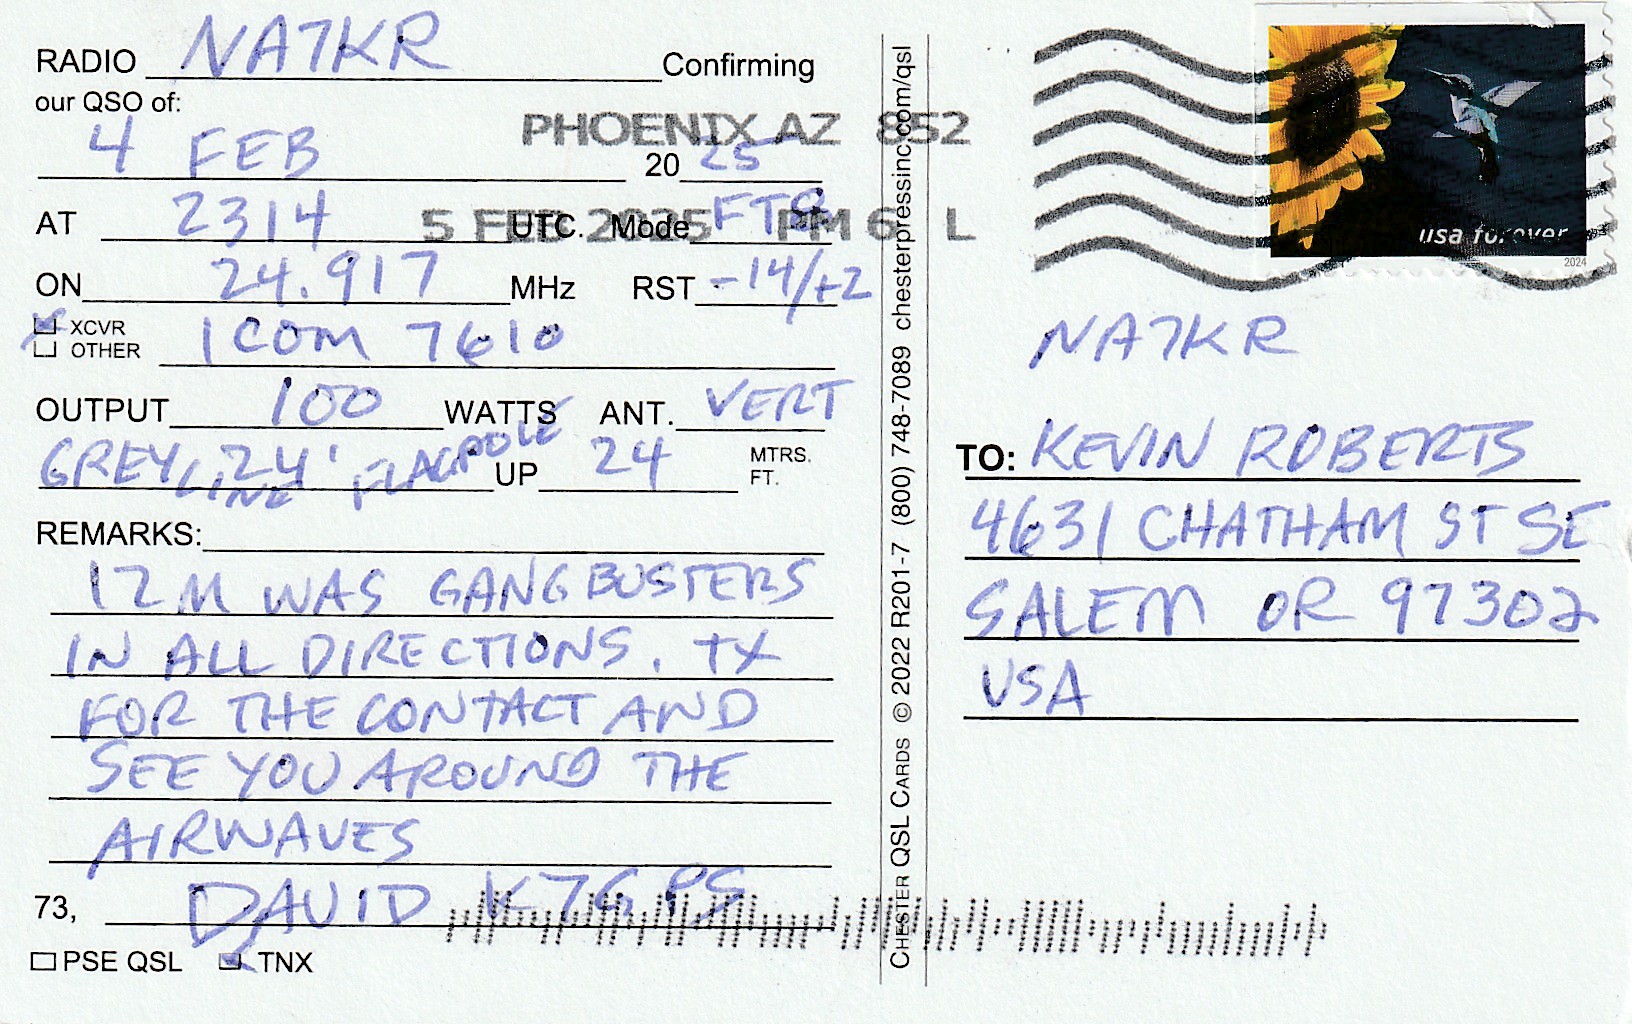 RADIO NA7KR Confirming
our QSO of:
4 FEB 20 25
AT 2314 UTC. Mode FT8
ON 24.917 MHz RST -14/+2
XCVR
OTHER
ICOM 7610
OUTPUT 100 WATTS ANT. VERT
GREYLINE 24' FLAGPOLE UP 24 MTRS.
FT.
REMARKS:
12M WAS GANGBUSTERS
IN ALL DIRECTIONS. TX
FOR THE CONTACT AND
SEE YOU AROUND THE
AIRWAVES
73, DAVID K7GPS
PSE QSL TNX
PHOENIX AZ 852
5 FEB 2025 PM 6 L
CHESTER QSL CARDS © 2022 R201-7 (800) 748-7089 chesterpressinc.com/qsl
usa forever
2024
NA7KR
TO: KEVIN ROBERTS
4631 CHATHAM ST SE
SALEM OR 97302
USA